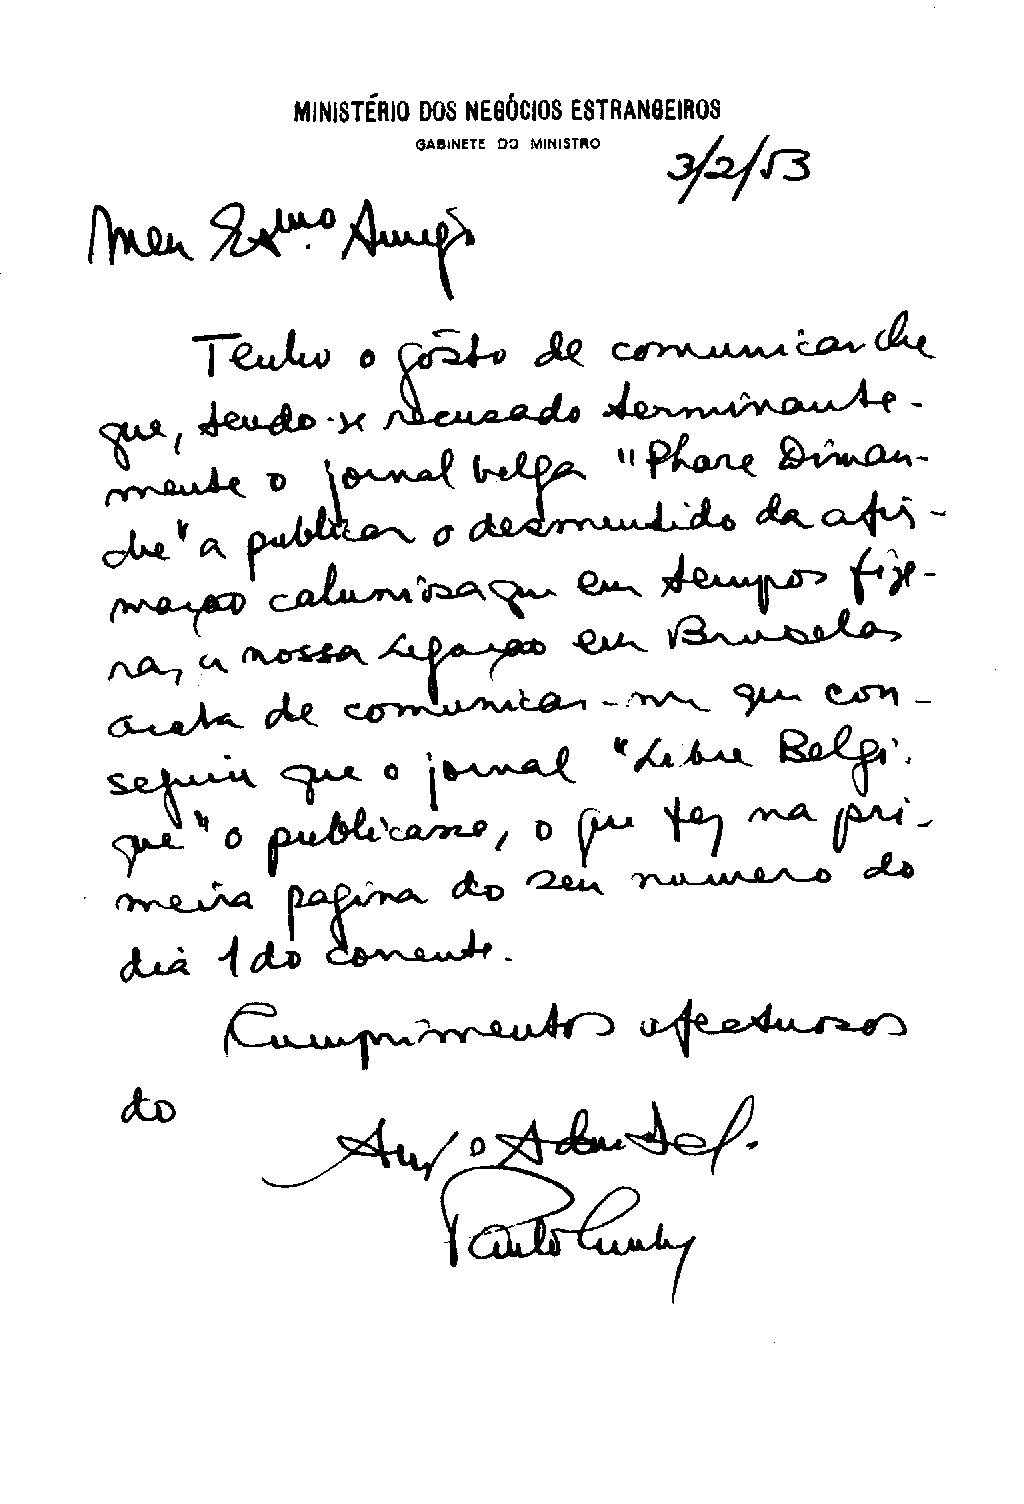 MINISTÉRIO DOS NEGÓCIOS ESTRANGEIROS
GABINETE DO MINISTRO
3/2/53
Meu Exmo. Amigo
Tenho o gôsto de comunicar-lhe
que, tendo-se recusado terminante-
mente o jornal belga "Phare Diman-
che" a publicar o desmentido da afir-
mação caluniosa que em tempos fize-
ra, a nossa Legação em Bruxelas
acaba de comunicar-me que con-
seguiu que o jornal "Libre Belgi-
que" o publicasse, o que fez na pri-
meira pagina do seu numero do
dia 1 do corrente.
Cumprimentos afectuosos
do
Paulo Cunha